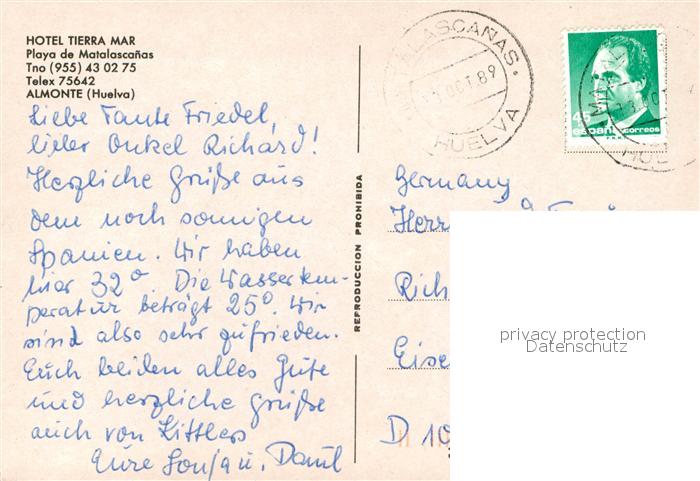 HOTEL TIERRA MAR
Playa de Matalascañas
Tno (955) 43 02 75
Telex 75642
ALMONTE (Huelva)
Liebe Tante Friedel,
lieber Onkel Richard!
Herzliche Grüße aus
dem noch sonnigen
Spanien. Wir haben
hier 32°. Die Wassertem-
peratur beträgt 25°. Wir
sind also sehr zufrieden.
Euch beiden alles Gute
und herzliche Grüße
auch von Kittlers
Eure Sonja u.
REPRODUCCION PROHIBIDA
LASCAÑAS.
OCT 89
HUELVA
45
españa correos
Germany
Herr
Rich
Eise
D 10
privacy protection
Datenschutz